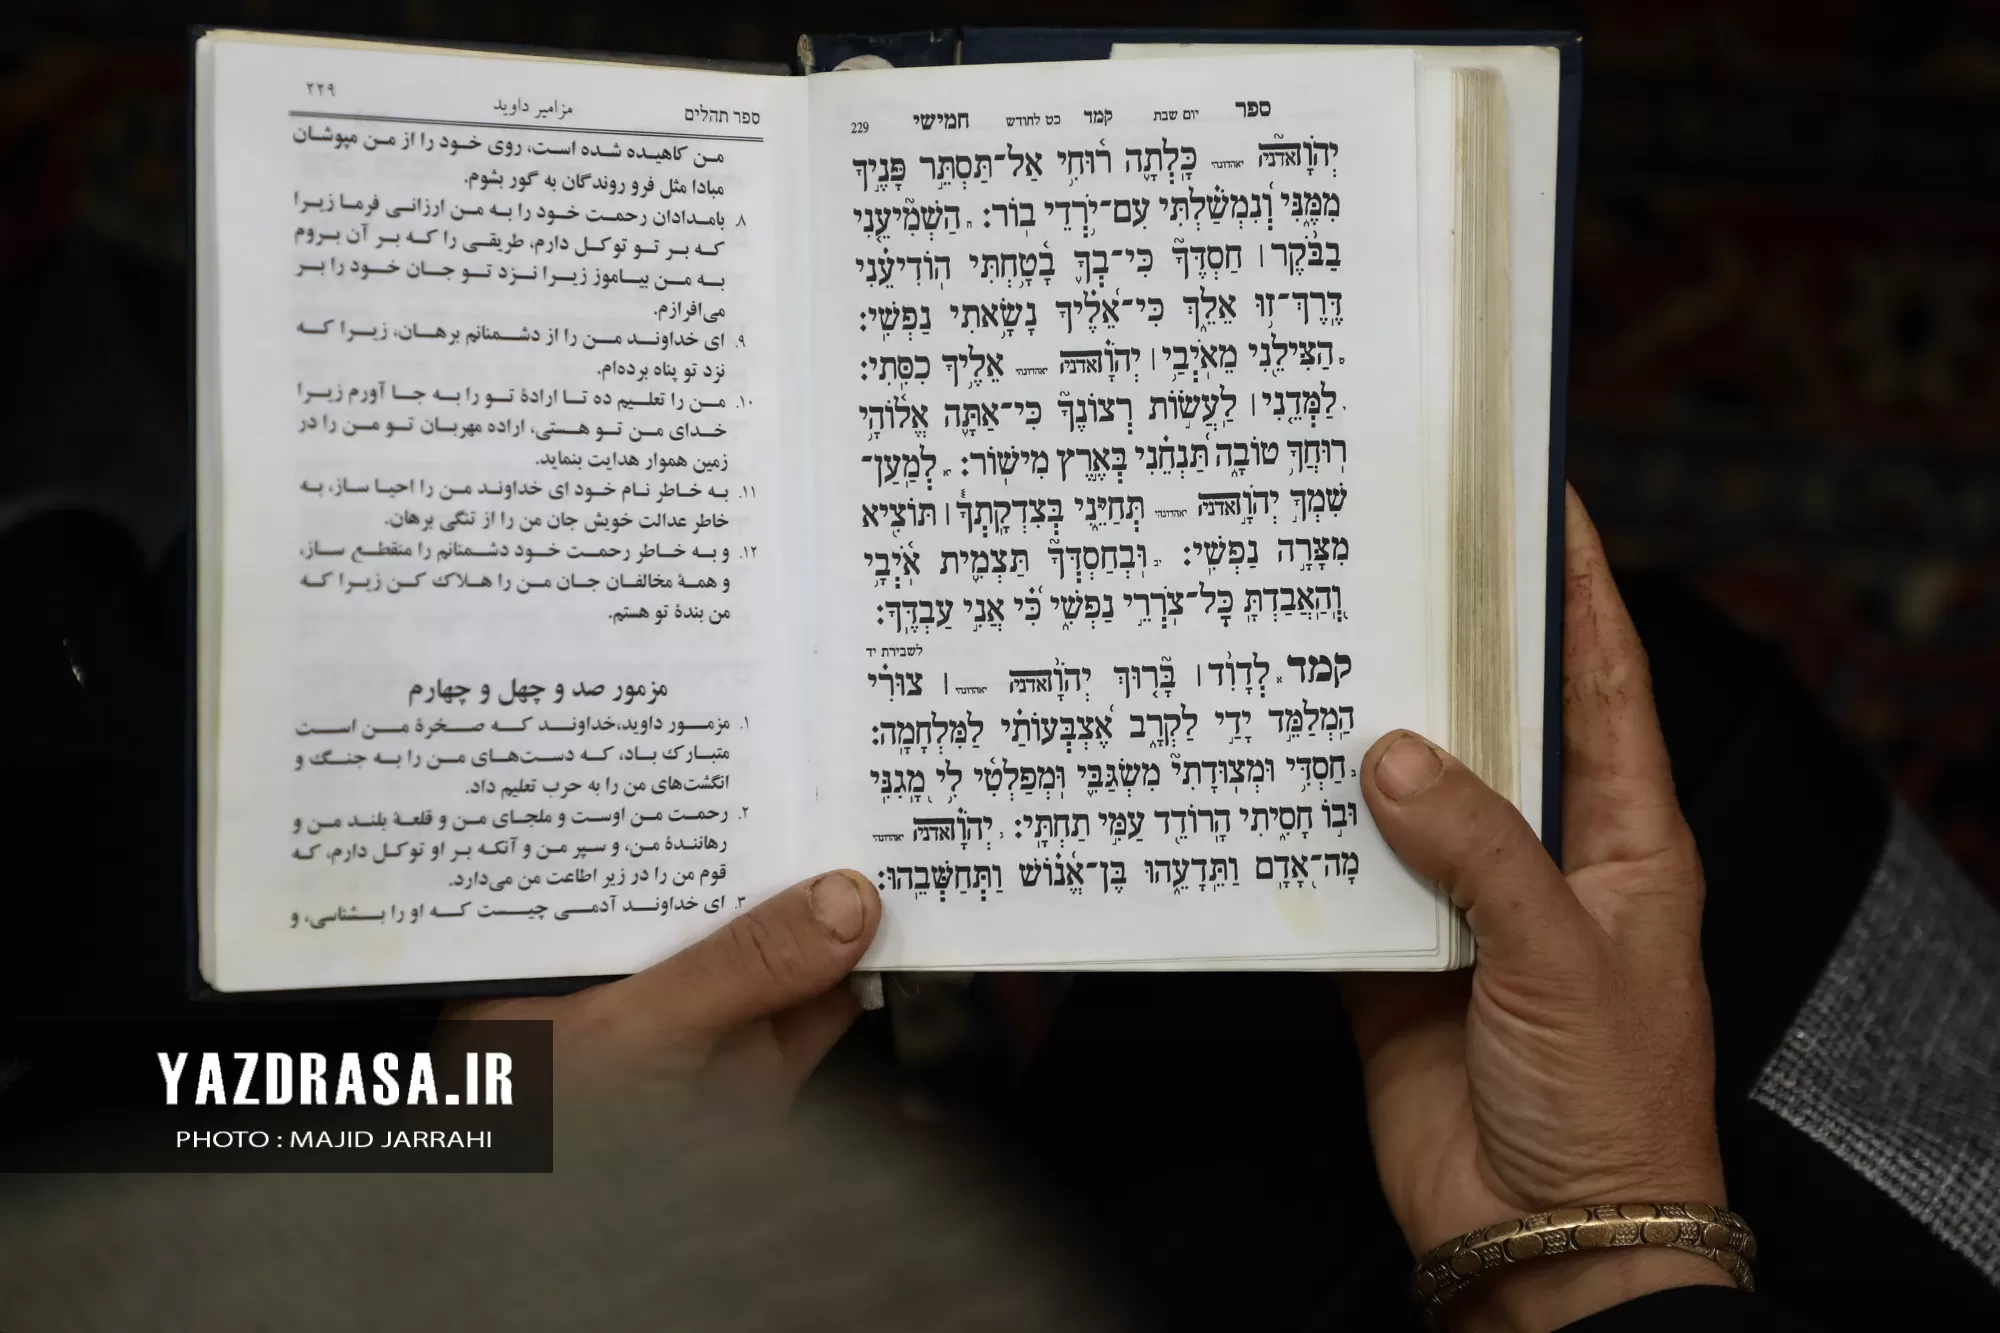 ספר יום שבת קמד כט לחודש חמישי 229
יְהֹוָה אדני יאהדונהי כָּלְתָה רוּחִי אַל־תַּסְתֵּר פָּנֶיךָ
מִמֶּנִּי וְנִמְשַׁלְתִּי עִם־יֹרְדֵי בוֹר׃ ח הַשְׁמִיעֵנִי
בַבֹּקֶר ׀ חַסְדֶּךָ כִּי־בְךָ בָטָחְתִּי הוֹדִיעֵנִי
דֶּרֶךְ־זוּ אֵלֵךְ כִּי־אֵלֶיךָ נָשָׂאתִי נַפְשִׁי׃
ט הַצִּילֵנִי מֵאֹיְבַי ׀ יְהֹוָה אדני יאהדונהי אֵלֶיךָ כִסִּתִי׃
י לַמְּדֵנִי ׀ לַעֲשׂוֹת רְצוֹנֶךָ כִּי־אַתָּה אֱלוֹהָי
רוּחֲךָ טוֹבָה תַּנְחֵנִי בְּאֶרֶץ מִישׁוֹר׃ יא לְמַעַן־
שִׁמְךָ יְהֹוָה אדני יאהדונהי תְּחַיֵּנִי בְּצִדְקָתְךָ ׀ תּוֹצִיא
מִצָּרָה נַפְשִׁי׃ יב וּבְחַסְדְּךָ תַּצְמִית אֹיְבָי
וְהַאֲבַדְתָּ כָּל־צֹרְרֵי נַפְשִׁי כִּי אֲנִי עַבְדֶּךָ׃
לשבירת יד
קמד א לְדָוִד ׀ בָּרוּךְ יְהֹוָה אדני יאהדונהי ׀ צוּרִי
הַמְלַמֵּד יָדַי לַקְרָב אֶצְבְּעוֹתַי לַמִּלְחָמָה׃
ב חַסְדִּי וּמְצוּדָתִי מִשְׂגַּבִּי וּמְפַלְטִי לִי מָגִנִּי
וּבוֹ חָסִיתִי הָרוֹדֵד עַמִּי תַחְתָּי׃ ג יְהֹוָה אדני יאהדונהי
מָה־אָדָם וַתֵּדָעֵהוּ בֶּן־אֱנוֹשׁ וַתְּחַשְּׁבֵהוּ׃
ספר תהלים مزامیر داوید ۲۲۹
من کاهیده شده است، روی خود را از من مپوشان
مبادا مثل فرو روندگان به گور بشوم.
۸. بامدادان رحمت خود را به من ارزانی فرما زیرا
که بر تو توکل دارم، طریقی را که بر آن بروم
به من بیاموز زیرا نزد تو جان خود را بر
می‌افرازم.
۹. ای خداوند من را از دشمنانم برهان، زیرا که
نزد تو پناه برده‌ام.
۱۰. من را تعلیم ده تا ارادهٔ تو را به جا آورم زیرا
خدای من تو هستی، اراده مهربان تو من را در
زمین هموار هدایت بنماید.
۱۱. به خاطر نام خود ای خداوند من را احیا ساز، به
خاطر عدالت خویش جان من را از تنگی برهان.
۱۲. و به خاطر رحمت خود دشمنانم را منقطع ساز،
و همهٔ مخالفان جان من را هلاک کن زیرا که
من بندهٔ تو هستم.
مزمور صد و چهل و چهارم
۱. مزمور داوید،خداوند که صخرهٔ من است
متبارک باد، که دست‌های من را به جنگ و
انگشت‌های من را به حرب تعلیم داد.
۲. رحمت من اوست و ملجای من و قلعهٔ بلند من و
رهانندهٔ من، و سپر من و آنکه بر او توکل دارم، که
قوم من را در زیر اطاعت من می‌دارد.
۳. ای خداوند آدمی چیست که او را بشناسی، و
YAZDRASA.IR
PHOTO : MAJID JARRAHI